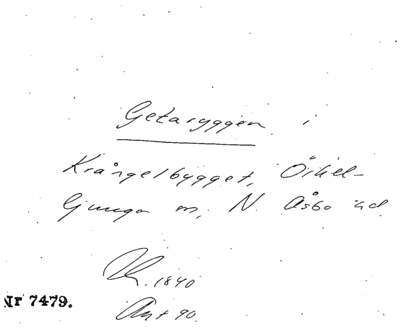 Getaryggen i
Krångelbygget, Örkel-
ljunga m, N. Åsbo hd
1840
Ant 90.
Nr 7479.